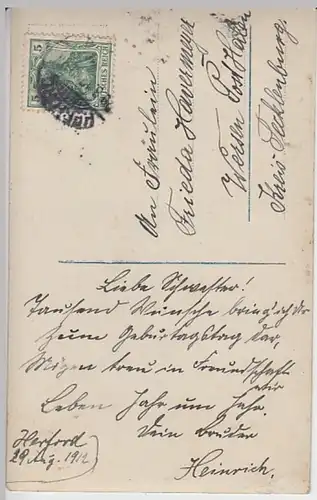 5 DEUTSCHES REICH 5
An Fräulein
Frieda Havermeyer
Wersen Post Halen
Kreis Tecklenburg.
Liebe Schwester!
Tausend Wünsche bring ich dir
zum Geburtstag dar,
Mögen treu in Freundschaft
wir
Leben Jahr um Jahr.
Dein Bruder
Heinrich.
Herford
29 Aug. 1912